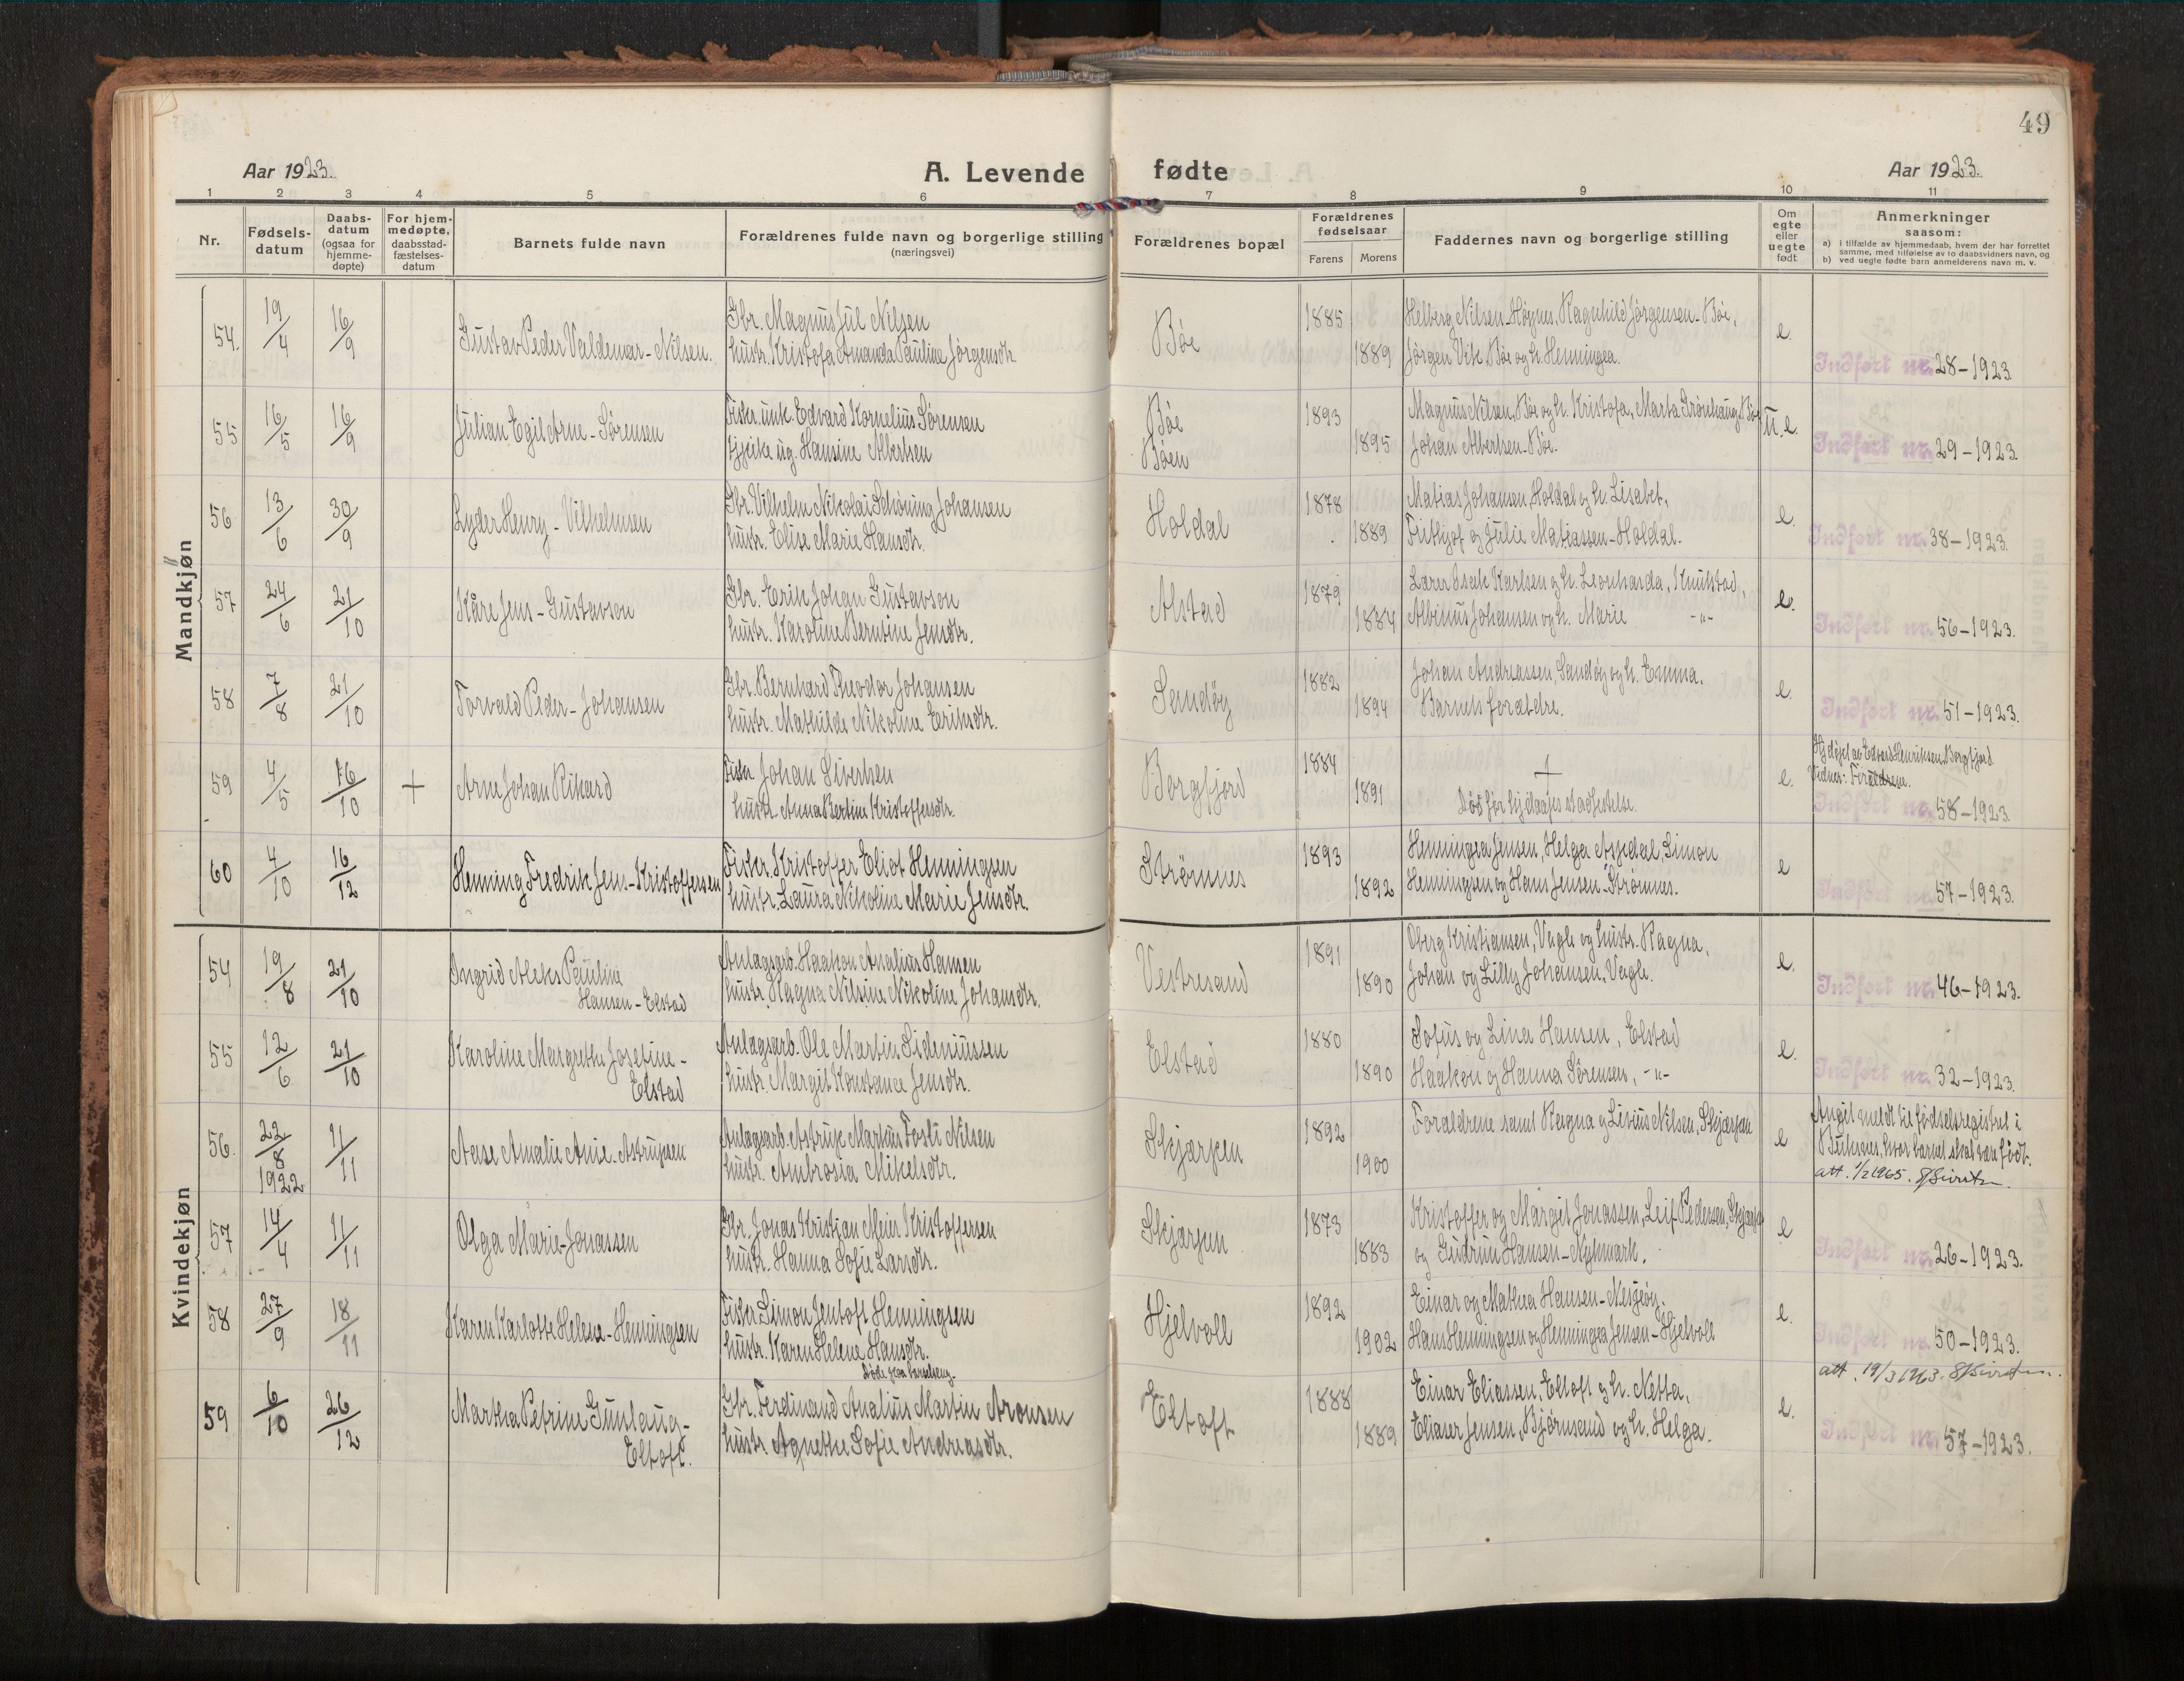 49
Aar 1923.
A. Levende fødte
Aar 1923.
1 2 3 4 5 6 7 8 9 10 11
Nr.
Fødsels-
datum
Daabs-
datum
(ogsaa for
hjemme-
døpte)
For hjem-
medøpte,
daabsstad-
fæstelses-
datum
Barnets fulde navn
Forældrenes fulde navn og borgerlige stilling
(næringsvei)
Forældrenes bopæl
Forældrenes
fødselsaar
Farens Morens
Faddernes navn og borgerlige stilling
Om
egte
eller
uegte
født
Anmerkninger
saasom:
a) i tilfælde av hjemmedaab, hvem der har forrettet
samme, med tilføielse av to daabsvidners navn, og
b) ved uegte fødte barn anmelderens navn m. v.
Mandkjøn
54. 19/4 16/9 Gustav Peder Valdemar - Nilsen.
Gbr. Magnus Jul Nilsen
hustr. Kristofa Amanda Pauline Jørgensdtr.
Bøe 1885 1889
Helberg Nilsen - Høgnes, Ragnhild Jørgensen - Bøe,
Jörgen Vik, Böe og h. Henningea.
e.
Indført nr. 28-1923.
55 16/5 16/9 Julian Egil Arne - Sørensen
Fisker. unk. Edvard Kornelius Sørensen
Pike ug. Hansine Albertsen
Bøe
Bøen
1893 1895
Magnus Nilsen, Bøe og h. Kristofa, Marta Grönhaug, Bøe
Johan Albertsen - Bøe.
u.e.
Indført nr. 29-1923.
56 13/6 30/9 Lyder Henry - Vilhelmsen
Gbr. Vilhelm Nikolai Schöning Johansen
hustr. Elise Marie Hansdtr.
Holdal 1878 1889
Matias Johansen, Holdal og h. Lisabet,
Frithjof og Julie Matiassen - Holdal.
e.
Indført nr. 38-1923.
57 24/6 21/10 Kåre Jens - Gustavson
Gbr. Erik Johan Gustavson
hustr. Karoline Berntine Jensdtr.
Alstad 1879 1884
Lærer Isak Karlsen og h. Leonharda, Knutstad,
Albinus Johansen og h. Marie -"-
e.
Indført nr. 56-1923.
58 7/8 21/10 Torvald Peder - Johansen
Gbr. Bernhard Theodor Johansen
hustr. Mathilde Nikoline Eriksdtr.
Sandöy 1882 1894
Johan Andreassen, Sandöy og h. Emma.
Barnets forældre.
e.
Indført nr. 51-1923.
59 4/5 16/10 + Arne Johan Rikard
Fisker Johan Sivertsen
hustr. Anna Bertine Kristoffersdtr.
Borgfjord 1884 1891
+
Död før hjdaabs stadfestelse.
e.
Hjdøpt av Edvard Henriksen, Borgfjord
Vidner: Forældrene.
Indført nr. 58-1923.
60 4/10 16/12 Henning Fredrik Jens - Kristoffersen
Fisker. Kristoffer Eliot Henningsen
hustr. Laura Nikoline Marie Jensdtr.
Strømnes 1893 1892
Henningea Jensen, Helga Aspedal, Simon
Henningsen og Hans Jensen - Strømnes.
e
Indført nr. 57-1923.
Kvindekjøn
54 19/8 21/10 Ingrid Aleks Pauline
Hansen - Elstad
Anlægsarb. Haakon Analius Hansen
hustr. Magna Nilsine Nikoline Johansdtr.
Vestresand 1891 1890
Oberg Kristiansen, Vagle og hustr. Ragna,
Johan og Lilly Johansen, Vagle.
e.
Indført nr. 46-1923.
55 12/6 21/10 Karoline Margrethe Josefine -
Elstad
Anlægsarb. Ole Martin Sideniussen
hustr. Margit Konstance Jensdtr.
Elstad 1880 1890
Sofus og Lina Hansen, Elstad
Haakon og Hanna Sørensen, -"-
e.
Indført nr. 32-1923.
56. 22/8 1922 11/11 Aase Amalie Anie - Astrupsen
Anlægsarb. Astrup Markus Tosti Nilsen
hustr. Ambrosia Mikelsdtr.
Skjarpen 1892 1900
Forældrene samt Ragna og Livius Nilsen, Skjarpen
e
Angit meldt til fødselsregistret i
Buksnes, hvor barnet skal være født.
att. 1/2 1965.
57 14/4 11/11 Olga Marie - Jonassen
Gbr. Jonas Kristjan Meier Kristoffersen
hustr. Hanna Sofie Larsdtr.
Skjarpen 1873 1883
Kristoffer og Margit Jonassen, Leif Pedersen, Skjarpen
og Gudrun Hansen - Nykmark.
e
Indført nr. 26-1923.
58 27/9 18/11 Karen Karlotte Helene - Henningsen
Fisker Simon Jentoft Henningsen
hustr. Karen Helene Hansdtr.
Døde paa barselseng.
Hjelvoll 1892 1902
Einar og Mathea Hansen - Nesjeöy.
Hans Henningsen og Henningea Jensen - Hjelvoll
e.
Indført nr. 50-1923.
att. 19/3 1963.
59 6/10 26/12 Martha Petrine Gunslaug -
Eltoft.
Gbr. Ferdinand Analius Martin Aronsen
hustr. Agnethe Sofie Andreasdtr.
Eltoft 1888 1889
Einar Eliassen, Eltoft og h. Netta,
Eliaser Jensen, Bjørnsand og h. Helga.
e.
Indført nr. 57-1923.